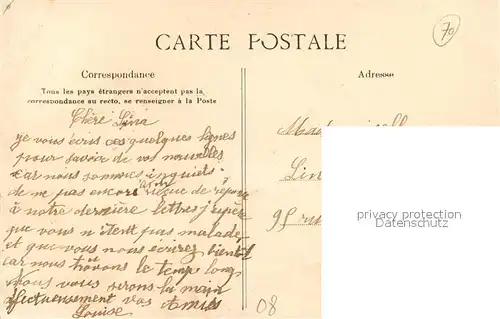 70
CARTE POSTALE
Correspondance
Adresse
Tous les pays étrangers n'acceptent pas la
correspondance au recto, se renseigner à la Poste
Chère Lina
je vous écris ces quelques lignes
pour savoir de vos nouvelles
car nous sommes inquiets
de ne pas encore avoir reçue de réponse
à notre dernière lettres j'espère
que vous n'êtent pas malade
et que vous nous écrirez bientôt
car nous trouvons le temps long
Nous vous serons la main
affectueusement vos Amies
Louise
08
Lin
95 ru
privacy protection
Datenschutz